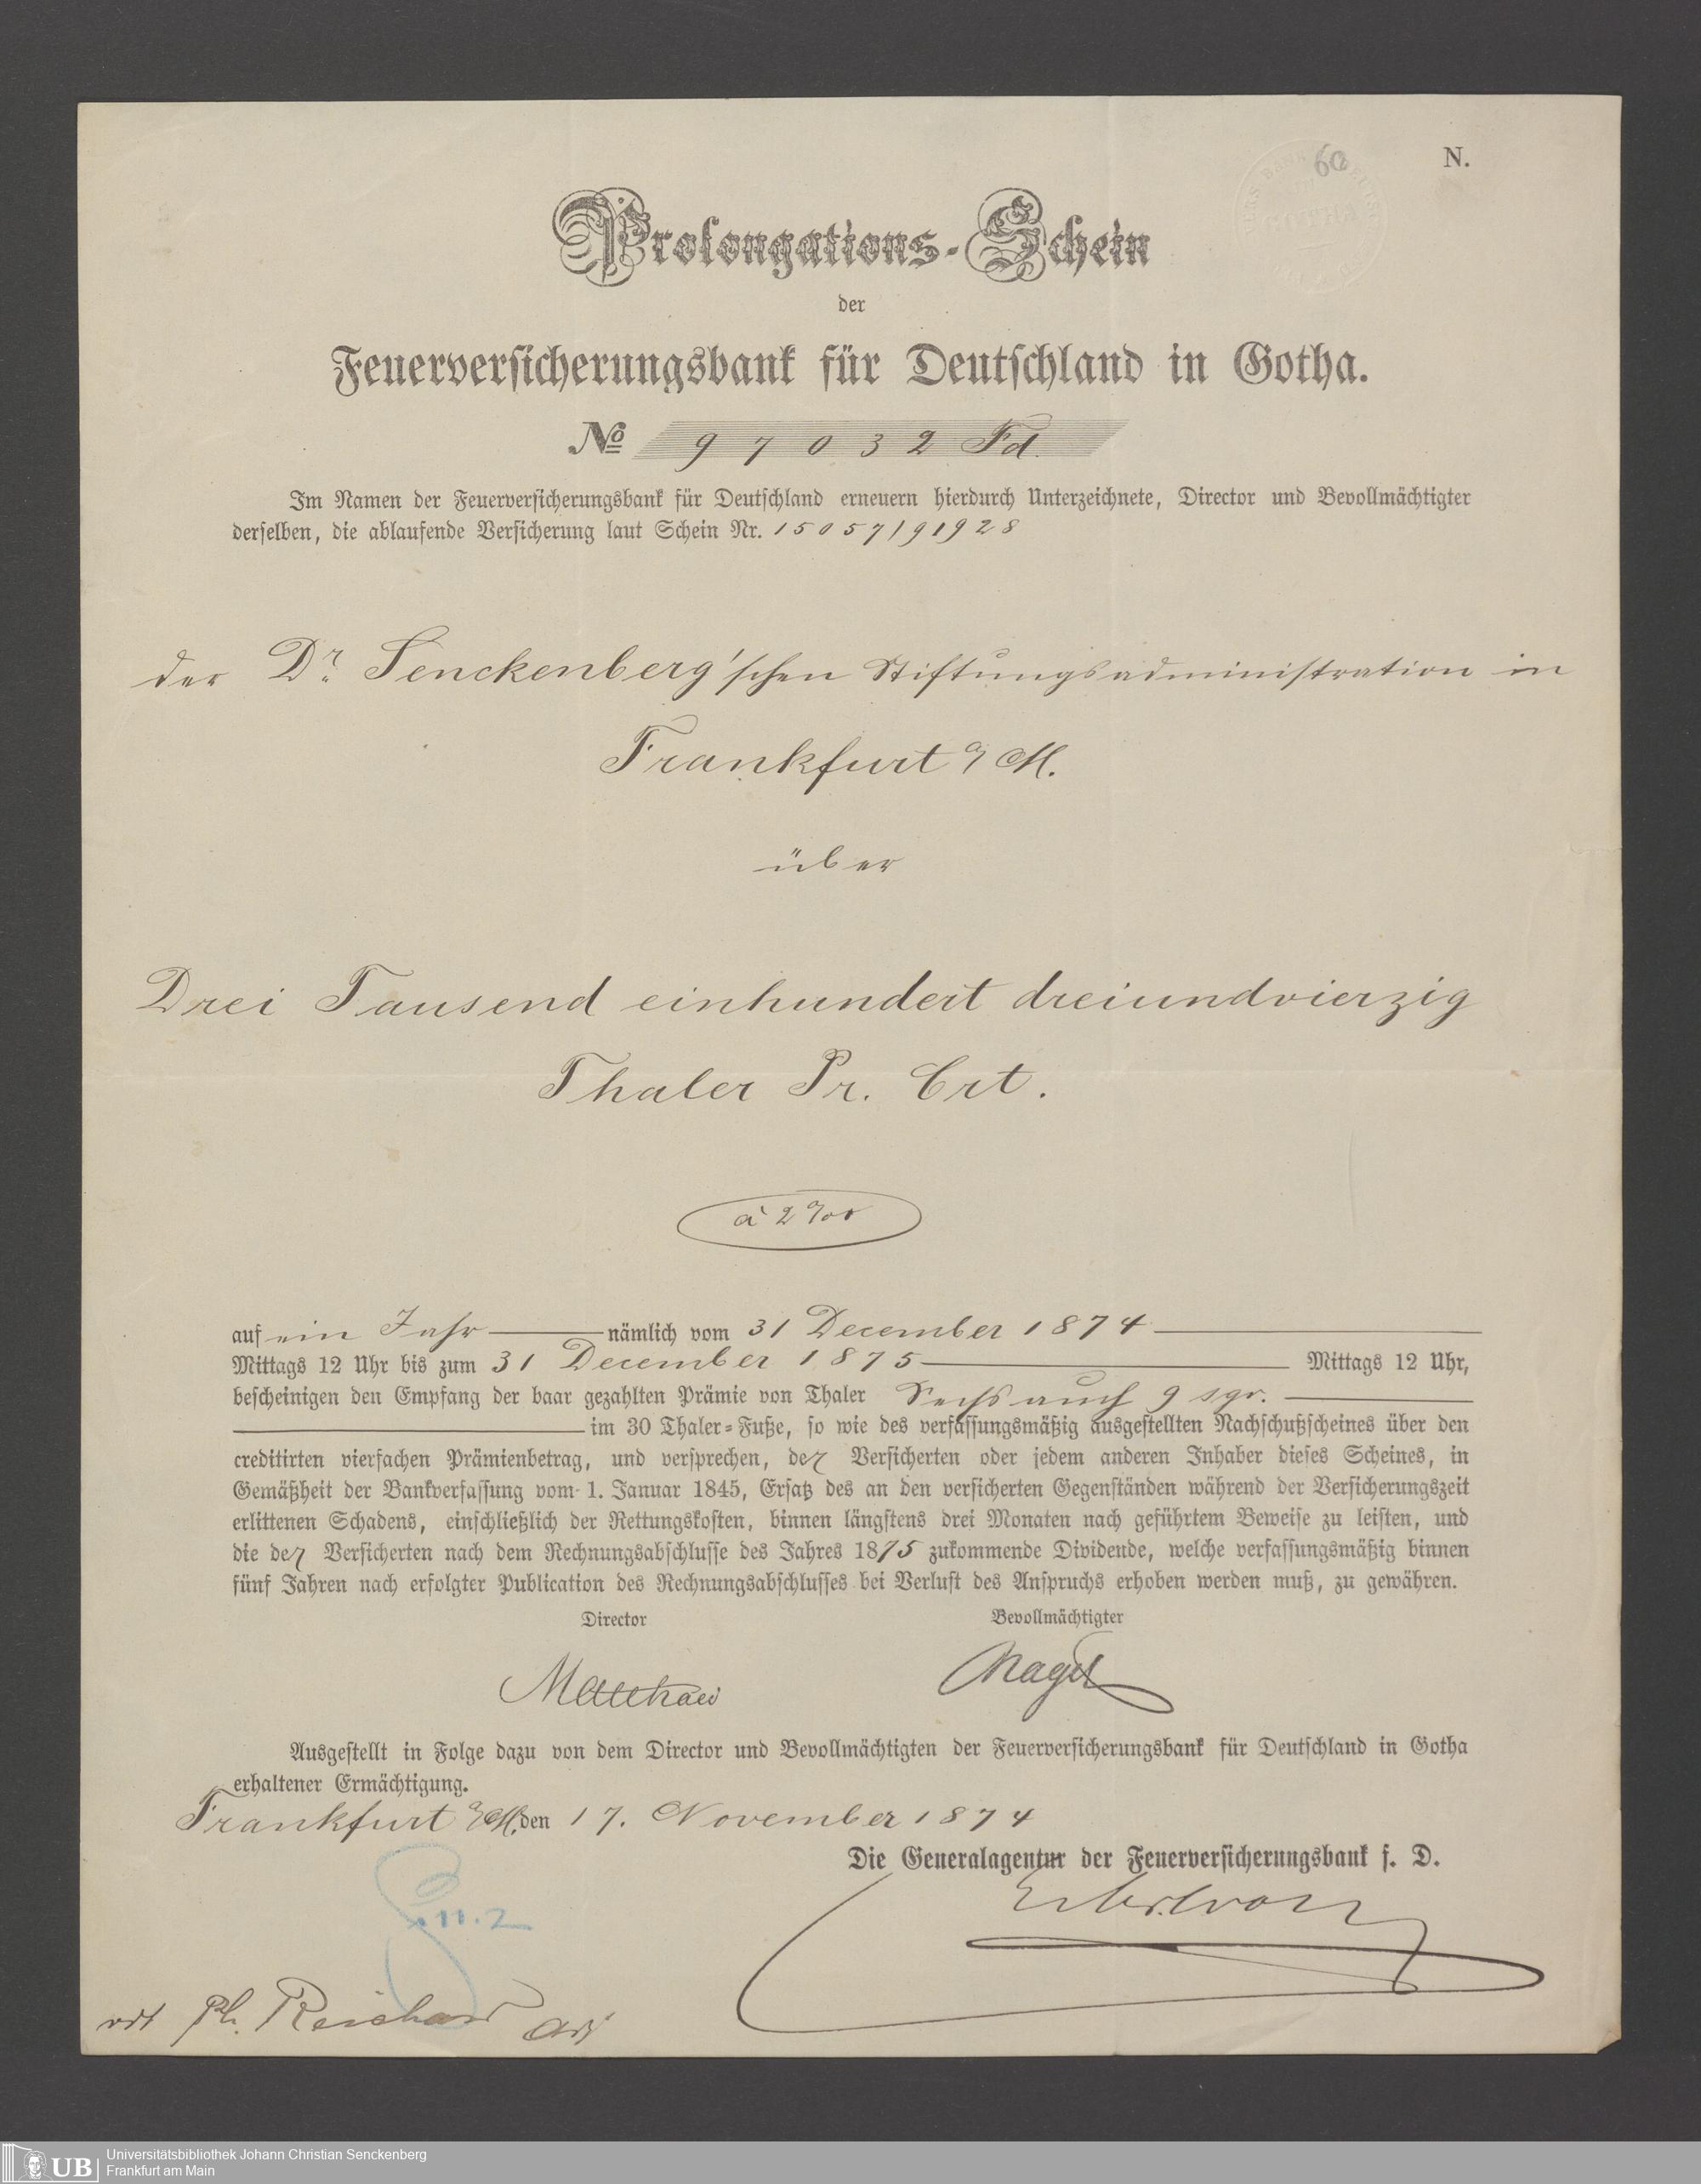 60
N.
Prolongations-Schein
der
Feuerversicherungsbank für Deutschland in Gotha.
No 97032 Fd.
Im Namen der Feuerversicherungsbank für Deutschland erneuern hierdurch Unterzeichnete, Director und Bevollmächtigter
derselben, die ablaufende Versicherung laut Schein Nr. 15057/91928
der Dr. Senckenberg'schen Stiftungsadministration in
Frankfurt a/M.
über
Drei Tausend einhundert dreiundvierzig
Thaler Pr. Crt.
à 2 ‰
auf ein Jahr nämlich vom 31 December 1874
Mittags 12 Uhr bis zum 31 December 1875 Mittags 12 Uhr,
bescheinigen den Empfang der baar gezahlten Prämie von Thaler Sechs auch 9 sgr.
im 30 Thaler-Fuße, so wie des verfassungsmäßig ausgestellten Nachschußscheines über den
creditirten vierfachen Prämienbetrag, und versprechen, der Versicherten oder jedem anderen Inhaber dieses Scheines, in
Gemäßheit der Bankverfassung vom 1. Januar 1845, Ersatz des an den versicherten Gegenständen während der Versicherungszeit
erlittenen Schadens, einschließlich der Rettungskosten, binnen längstens drei Monaten nach geführtem Beweise zu leisten, und
die der Versicherten nach dem Rechnungsabschlusse des Jahres 1875 zukommende Dividende, welche verfassungsmäßig binnen
fünf Jahren nach erfolgter Publication des Rechnungsabschlusses bei Verlust des Anspruchs erhoben werden muß, zu gewähren.
Director Bevollmächtigter
Matthaei Nagel
Ausgestellt in Folge dazu von dem Director und Bevollmächtigten der Feuerversicherungsbank für Deutschland in Gotha
erhaltener Ermächtigung.
Frankfurt a/M. den 17. November 1874
Die Generalagentur der Feuerversicherungsbank f. D.
11.2
vdt Ph. Reichard
UB Universitätsbibliothek Johann Christian Senckenberg
Frankfurt am Main